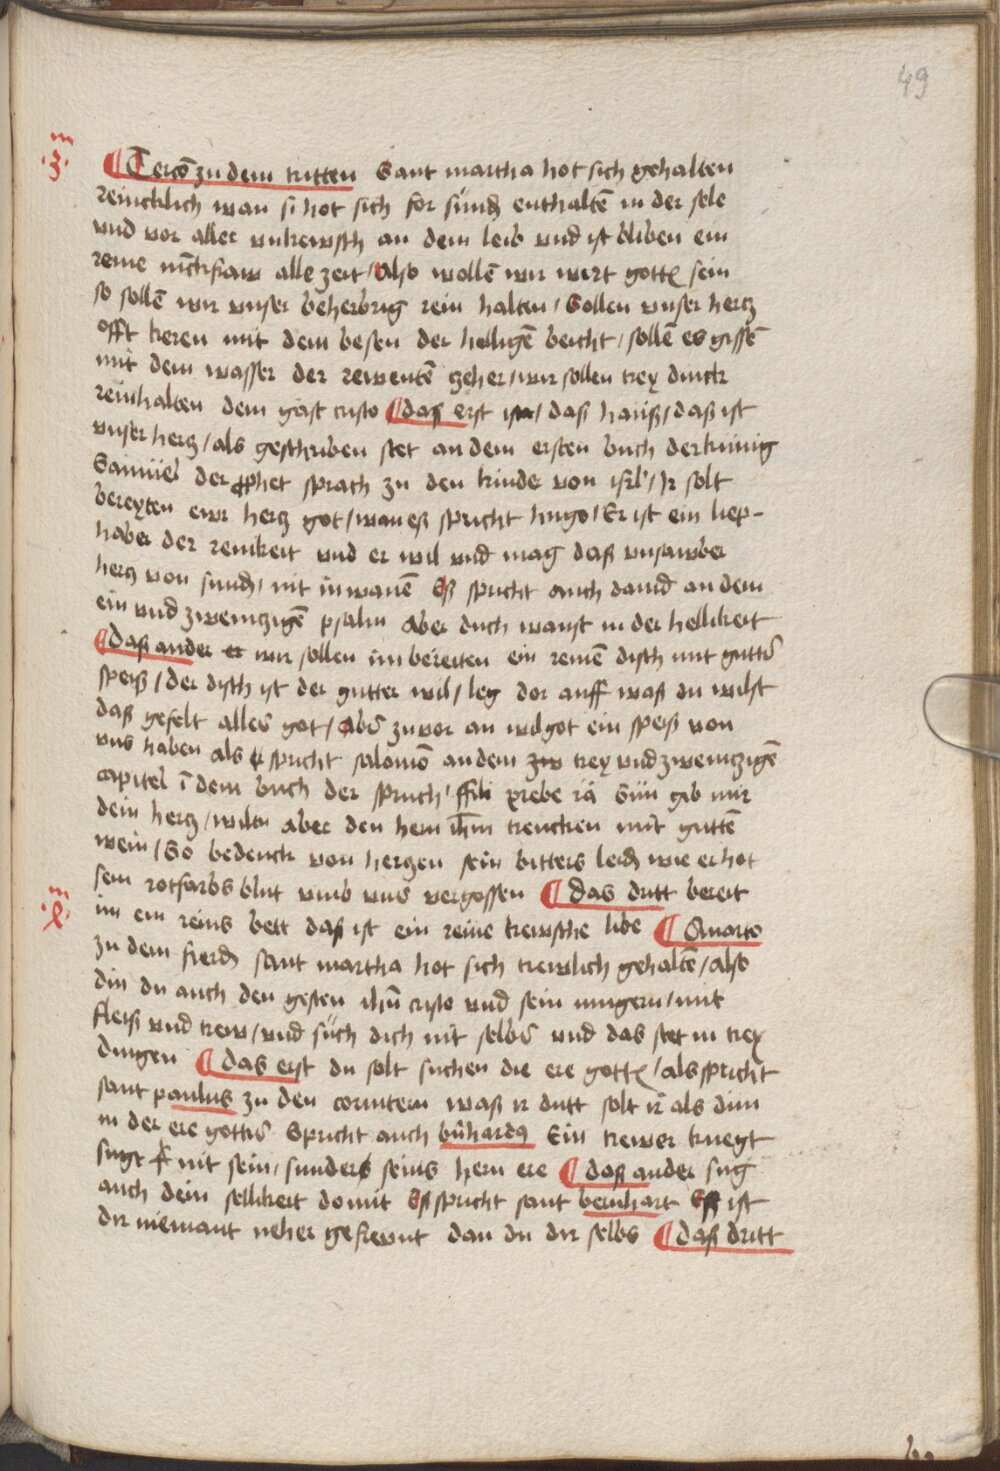 49
·3·m ¶ Tercō zu dem tritten Sant martha hot sich gehalten
reincklich wan si hot sich for sünd enthaltē in der sele
vnd vor aller vnkewsch an dem leib vnd ist bliben ein
reine iūckfraw alle zeit / Also wollē wir wirt gottes sein
so sollē wir vnser beherbrig rein halten / Sollen vnser hertz
offt keren mit dem besen der heiligē beicht / sollē es gissē
mit dem wasser der rewentē zeher / wir sollen trey dinck
reinhalten dem gast cristo ¶ das erst ist / daß hauß / daß ist
vnser hertz / als geschriben stet an dem ersten buch der kunig
Samuel der prophet sprach zu den kinder von isrl' / Ir solt
bereyten ewr hertz got / wan eß spricht hugo / Er ist ein liep-
haber der reinikeit vnd er wil vnd mag daß vnsawber
hertz von sund / nit inwanē Eß spricht auch dauid an dem
ein vnd zweintzigē psalm Aber duch wanst in der hellikeit
¶ Daß ander er wir sollen im bereiten ein reinē disch mit gutter
speiß / der disch ist der gutter wil / leg dor auff waß du wilst
daß gefelt alles got / Aber zuvor an wil got ein speiß von
vns haben als spricht salomō an dem zw trey vnd zweintzigē
capitel ī dem buch der spruch / ffili prebe Sun gib mir
dein hertz / wiltu aber den hern ihm trencken mit guttē
wein / So bedenck von hertzen sein bitters leid wie er hot
sein rotfarbs blut vmb vns vergossen ¶ das dritt bereit
im ein reins bett daß ist ein reine kewsche libe ¶ Quarto
zu dem fierd sant martha hot sich trewlich gehaltē / also
din du auch den gesten ihū cristo vnd sein iungern / mit
fleiß vnd trew / vnd such dich nit selber vnd das stet in trey
dingen ¶ das erst du solt suchen die ere gottes / als spricht
sant paulus zu den corintern waß ir dutt solt ir als dun
in der ere gottes Spricht auch bn̄hardus Ein trewer knegt
sugt nit sein / sunders seins hern ere ¶ daß ander sug
auch dein sellikeit domit Eß spricht sant bernhart Eß ist
dir niemant neher gefrevnt dan du dir selbs ¶ daß dritt